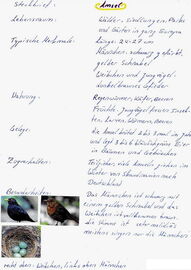 Steckbrief: Amsel
Lebensraum: Wälder, Siedlungen, Parks
und Gärten in ganz Europa
Typische Merkmale: Länge: 24-27 cm
Männchen: schwarz gefärbt,
gelber Schnabel
Weibchen und Jungvögel:
dunkelbraunes Gefieder
Nahrung: Regenwürmer, Käfer, Beeren
Früchte, kleine
Gelege: Die Amsel brütet
und legt
in Bäumen und Gebüschen
Zugverhalten: Teilzieher, viele Amseln ziehen im
Winter von Skandinavien nach
Deutschland
Besonderheiten: Das Männchen ist schwarz mit
einem gelben Schnabel und das
Weibchen ist braun.
Die Amsel ist sehr
meistens singen nur die Männchen.
rechts oben: Weibchen, links oben Männchen